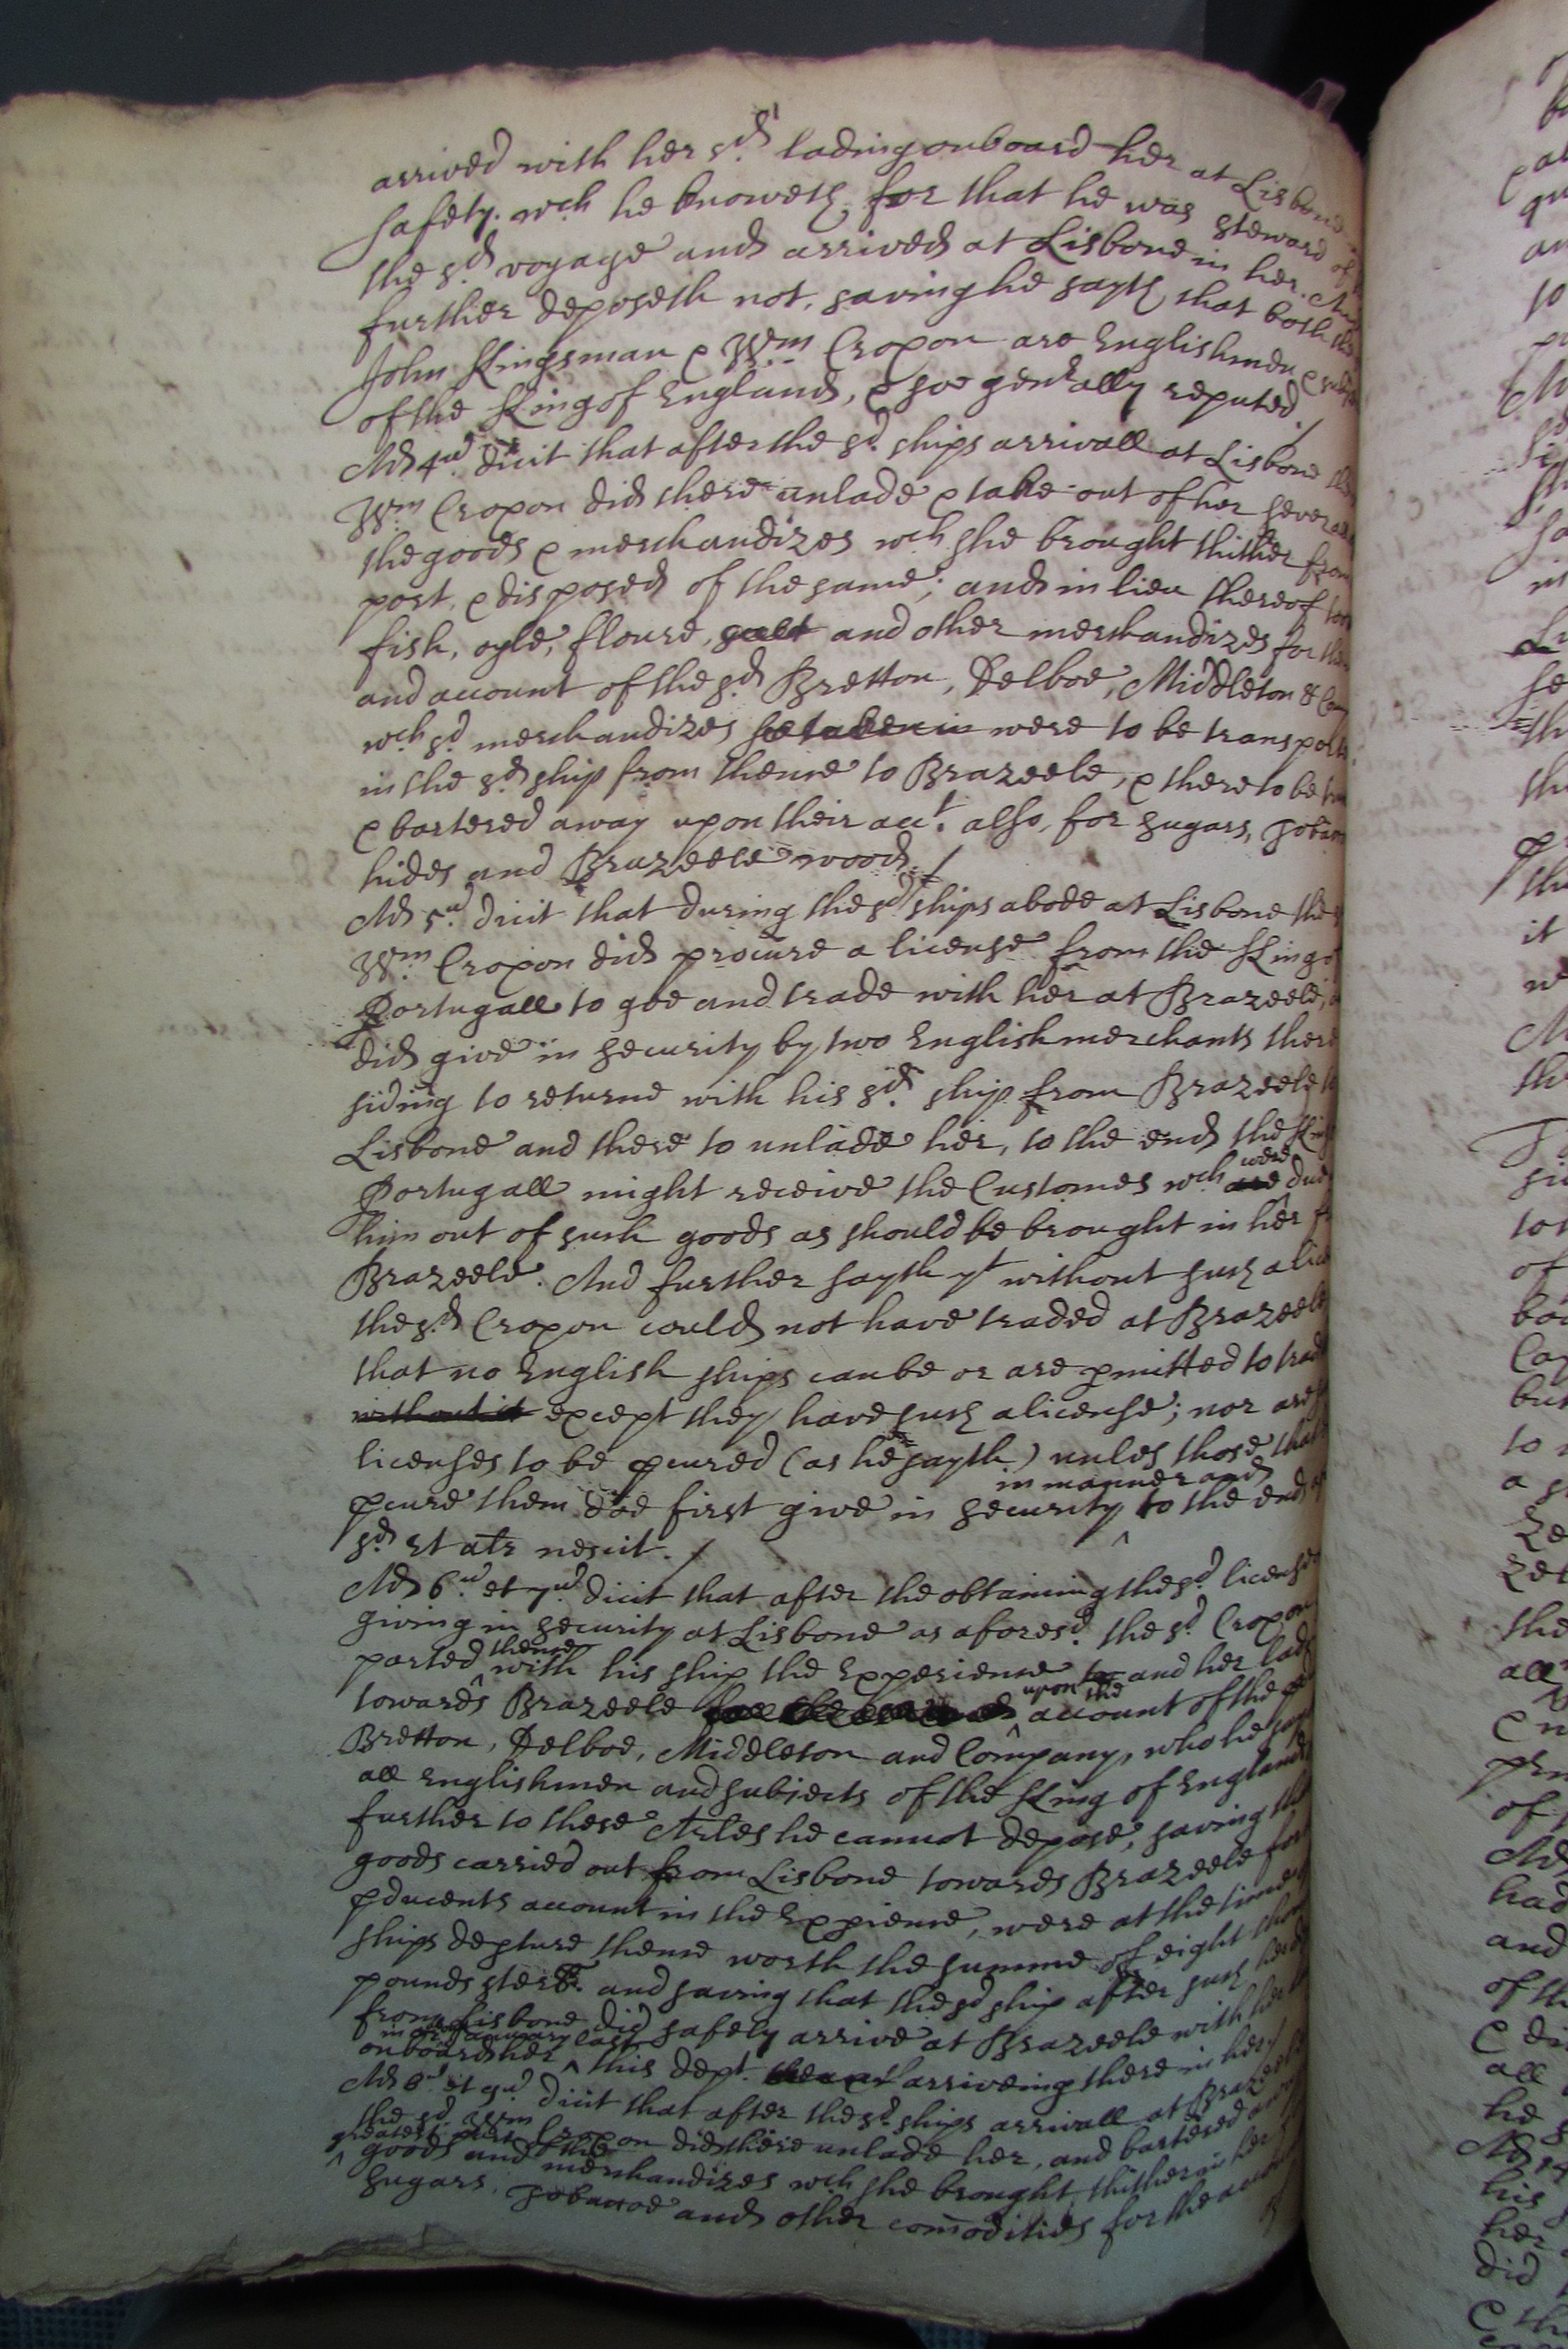 arrived with her sd. lading onboard her at Lisbone
safety. wch he knoweth, for that he was steward of
the sd. voyage and arrived at Lisbone in her. And
further deposeth not, saving he sayth that both the
John Kingsman & Wm. Croxon are Englishmen &
of the King of England, & soe genrally reputed./
Ad 4um. dicit that after the sd. ships arrivall at Lisbone the
Wm Croxon did there unlade & take out of her severall
the goods & merchandizes wch she brought thither from
port, & disposed of the same; and in lieu thereof
fish, oyle, floure, salt and other merchandizes for the
and account of the sd. Bretton, Delboe, Middleton &
wch sd. merchandizes hee taken in were to be transported
in the sd. ship from thence to Brazeele, & there to be
& bartered away upon their acct. also, for sugars,
hides and Brazeele wood./
Ad 5um. dicit that during the sd ships abode at Lisbone the
Wm. Croxon did procure a license from the King of
Portugall to goe and trade with her at Brazeele,
did give in security by two English merchants there
siding to returne with his sd. ship from Brazeele to
Lisbone and there to unlade her, to the end the King
Portugall might receive the Customes wch are were due
him out of such goods as should be brought in her
Brazeele. And further sayth yt without such a
the sd. Croxon could not have traded at Brazeele
that no English ships can be or are pmitted to trade
without it except they have such a license; nor are
licenses to be pcured (as he sayth) unles those that
pcure them doe first give in security in manner and to the end
sd. Et alr nescit./
Ad 6um. et 7um. dicit that after the obtaining the sd. license
giving in security at Lisbone as aforesd. the sd. Croxon
parted thence with his ship the Experience to and her
towards Brazeele upon the account of the
Bretton, Delboe, Middleton and Company, who he
all Englishmen and subjects of the King of England
further to these Arles he cannot depose, saving the
goods carried out from Lisbone towards Brazeele for
pducents account in the Expience, were at the time
ships depture thence worth the summe of eight
pounds sterl. and saving that the sd ship after such her
from Lisbone did safely arrive at Brazeele with her
onboard her in or January last this dept. arriveing there in her
Ad 8um. et 9um. dicit that after the sd. ships arrivall at Brazeele
the sd. Wm Croxon did there unlade her, and bartered
greatest part of the goods and merchandizes wch she brought thither in her
sugars, Tobaccoe and other comodities for the